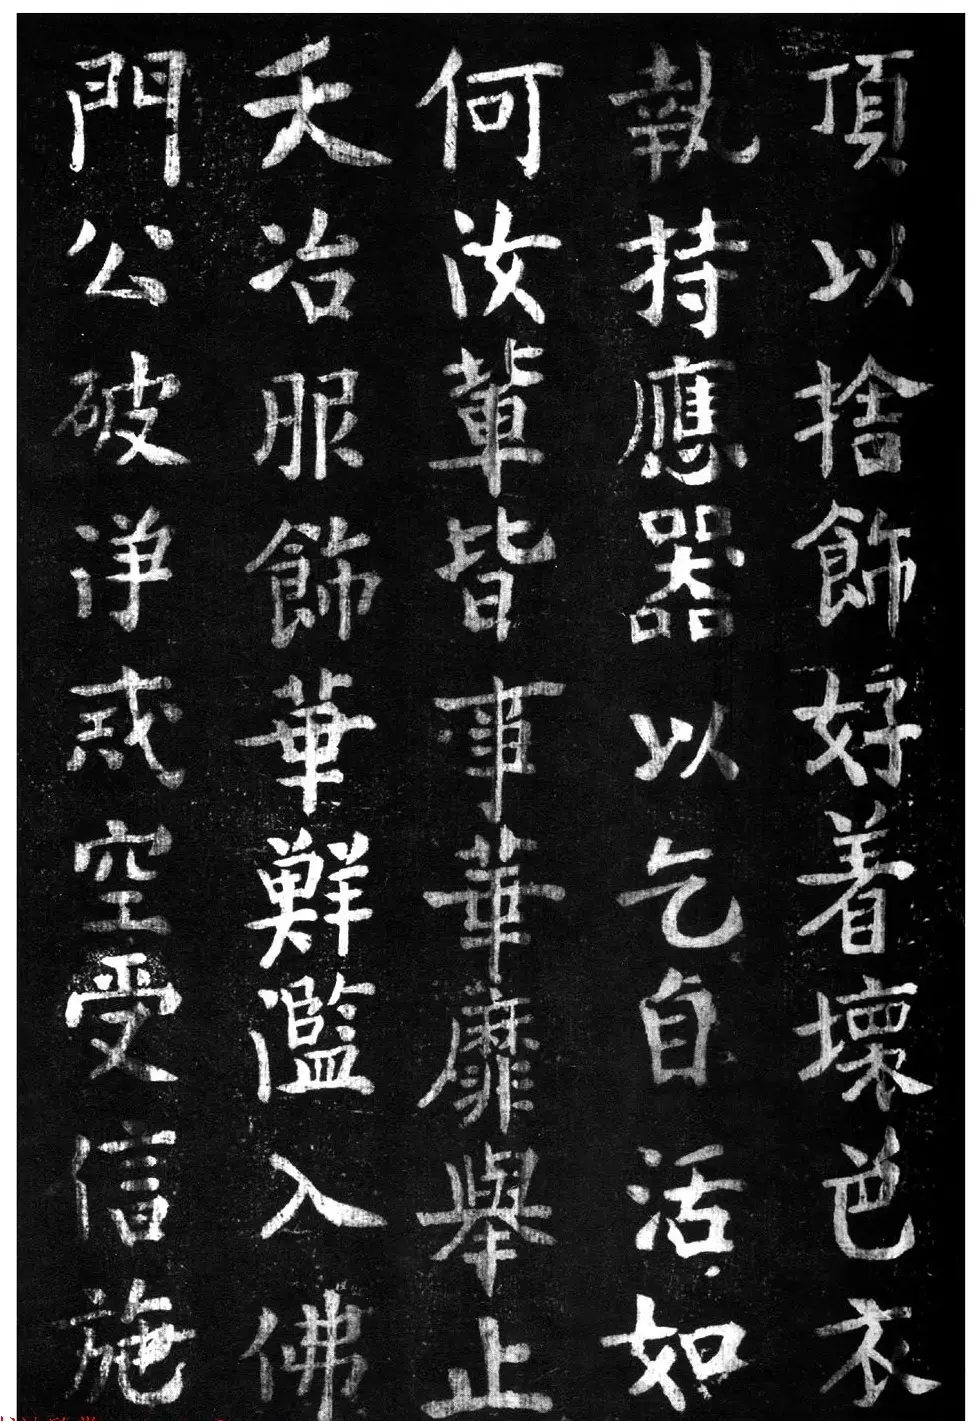 頂以捨飾好着壞色衣
執持應器以乞自活如
何汝輩皆事華靡舉止
夭冶服飾華鮮濫入佛
門公破淨戒空受信施